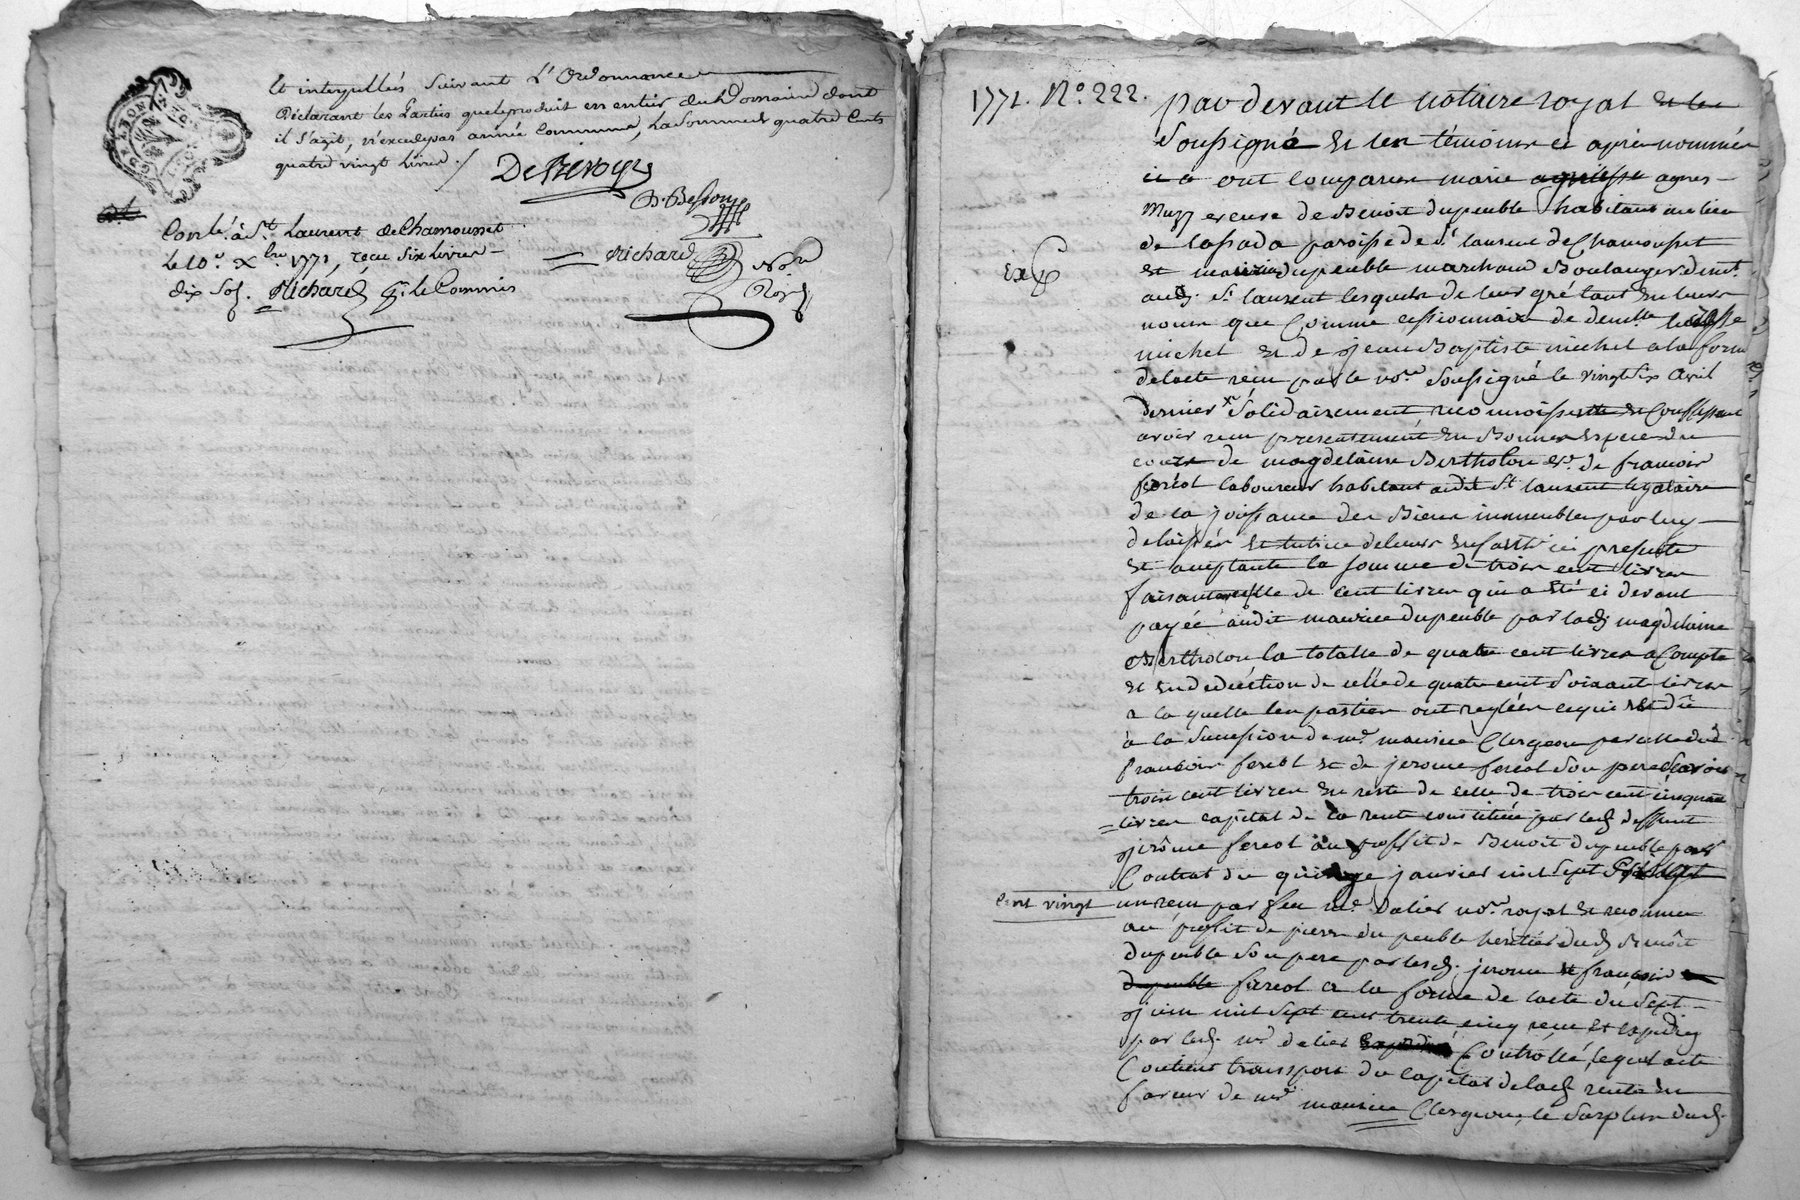 et interpellés suivant L'Ordonnance
Déclarant les Parties que le produit en entier dud Domaine dont
il s'agit, n'excede pas année Commune, La Somme de quatre Cents
quatre vingt Livres ./.
DeRevoys
B. Besson
Conlé. à St. Laurent de Chamousset
Le 10e. Xbre 1771, recu Six Livres
dix Sols. Richard p. le Commis
Richard Nore
Royal
GEN. LYON
1771. No. 222.
par devant le notaire royal et les
Soussigné et les témoins cy aprés nommés
ont comparu marie agnes
veuve de Benoit dupeuble habitant au lieu
de lafada paroisse de St. laurent de Chamousset
et maurice dupeuble marchand Boulanger demt.
aud. St. laurent lesquels de leur gré tant en leurs
noms que Comme cessionnaire de demlle.
michel et de jean Baptiste michel a la forme
de lacte recu par le nore. Soussigné le vingt Six Avril
dernier Solidairement reconnoissent et Confessent
avoir recu presentement en Bonnes especes du
cours de magdelaine Bertholon ve. de francois
fereol laboureur habitant audit St laurent legataire
de la jouissance des Biens immeubles par luy
delaissés et tutrice de leurs enfants ici presente
et acceptante la somme de trois cent livres
faisant celle de cent livres qui a été ci devant
payée audit maurice dupeuble par lad magdelaine
Bertholon la totalle de quatre cent livres a Compte
et en deduction de celle de quatre cent Soixante livres
a la quelle les parties ont reglées ce qui est dû
à la Succession de me. maurice Clergeon par celle dud
francois fereol et de jerome fereol Son pere Savoir
trois cent livres en reste de celle de trois cent cinquante
livres capital de la rente constituée par led deffunt
jerôme fereol au proffit de Benoit dupeuble par
Contrat du quinze janvier mil Sept
cent vingt
un recu par feu me. Dalier nore. royal et reconnue
au profit de pierre du peuble heritier dud Benoit
dupeuble Son pere par lesd. jerome et francois
dupeuble fereol a la forme de lacte du Sept
juin mil Sept cent trente cinq recu et expedié
par led. me dalier Controllé, lequel acte
Contient transport du capital de lad rente en
faveur de me maurice Clergeon, le Surplus dud.